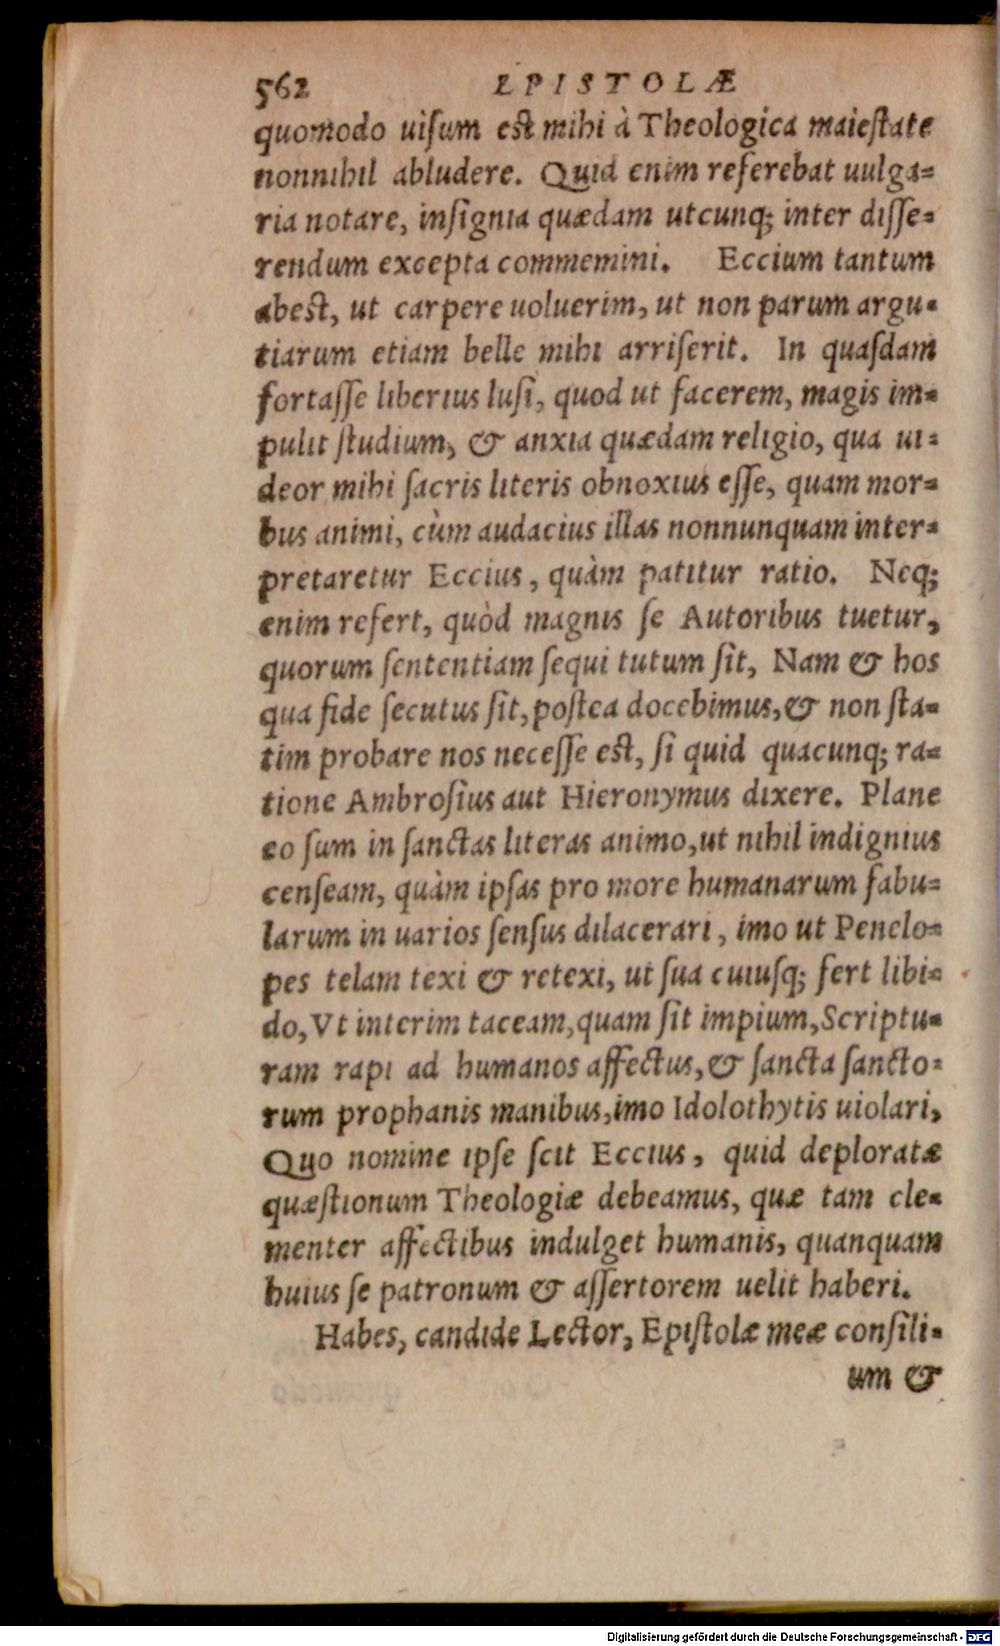 562 EPISTOLÆ
quomodo uiſum eſt mihi à Theologica maieſtate
nonnihil abludere. Quid enim referebat uulga=
ria notare, inſignia quædam utcunq; inter diſſe=
rendum excepta commemini. Eccium tantum
abeſt, ut carpere uoluerim, ut non parum argu=
tiarum etiam belle mihi arriſerit. In quaſdam
fortaſſe liberius luſi, quod ut facerem, magis im=
pulit ſtudium, & anxia quædam religio, qua ui=
deor mihi ſacris literis obnoxius eſſe, quam mor=
bus animi, cùm audacius illas nonnunquam inter=
pretaretur Eccius, quàm patitur ratio. Neq;
enim refert, quòd magnis ſe Autoribus tuetur,
quorum ſententiam ſequi tutum ſit, Nam & hos
qua fide ſecutus ſit, poſtea docebimus, & non ſta=
tim probare nos neceſſe eſt, ſi quid quacunq; ra=
tione Ambroſius aut Hieronymus dixere. Plane
eo ſum in ſanctas literas animo, ut nihil indignius
cenſeam, quàm ipſas pro more humanarum fabu=
larum in uarios ſenſus dilacerari, imo ut Penelo=
pes telam texi & retexi, ut ſua cuiuſq; fert libi=
do, Vt interim taceam, quam ſit impium, Scriptu=
ram rapi ad humanos affectus, & ſancta ſancto=
rum prophanis manibus, imo Idolothytis uiolari,
Quo nomine ipſe ſcit Eccius, quid deploratæ
quæſtionum Theologiæ debeamus, quæ tam cle=
menter affectibus indulget humanis, quanquam
huius ſe patronum & aſſertorem uelit haberi.
Habes, candide Lector, Epiſtolæ meæ conſili=
um &
Digitalisierung gefördert durch die Deutsche Forschungsgemeinschaft - DFG